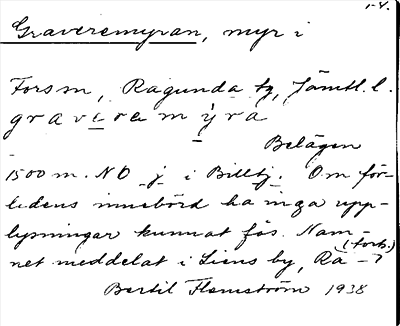 1-4.
Graveremyran, myr i
Forsm, Ragunda tg, Jämtl. l.
gravẹrem ỳra
Belägen
1500 m. NO j i Billtj. Om för-
ledens innebörd ha inga upp-
lysningar kunnat fås. Nam-
(forts.)
net meddelat i Liens by, Ra -7
Bertil Flemström 1938